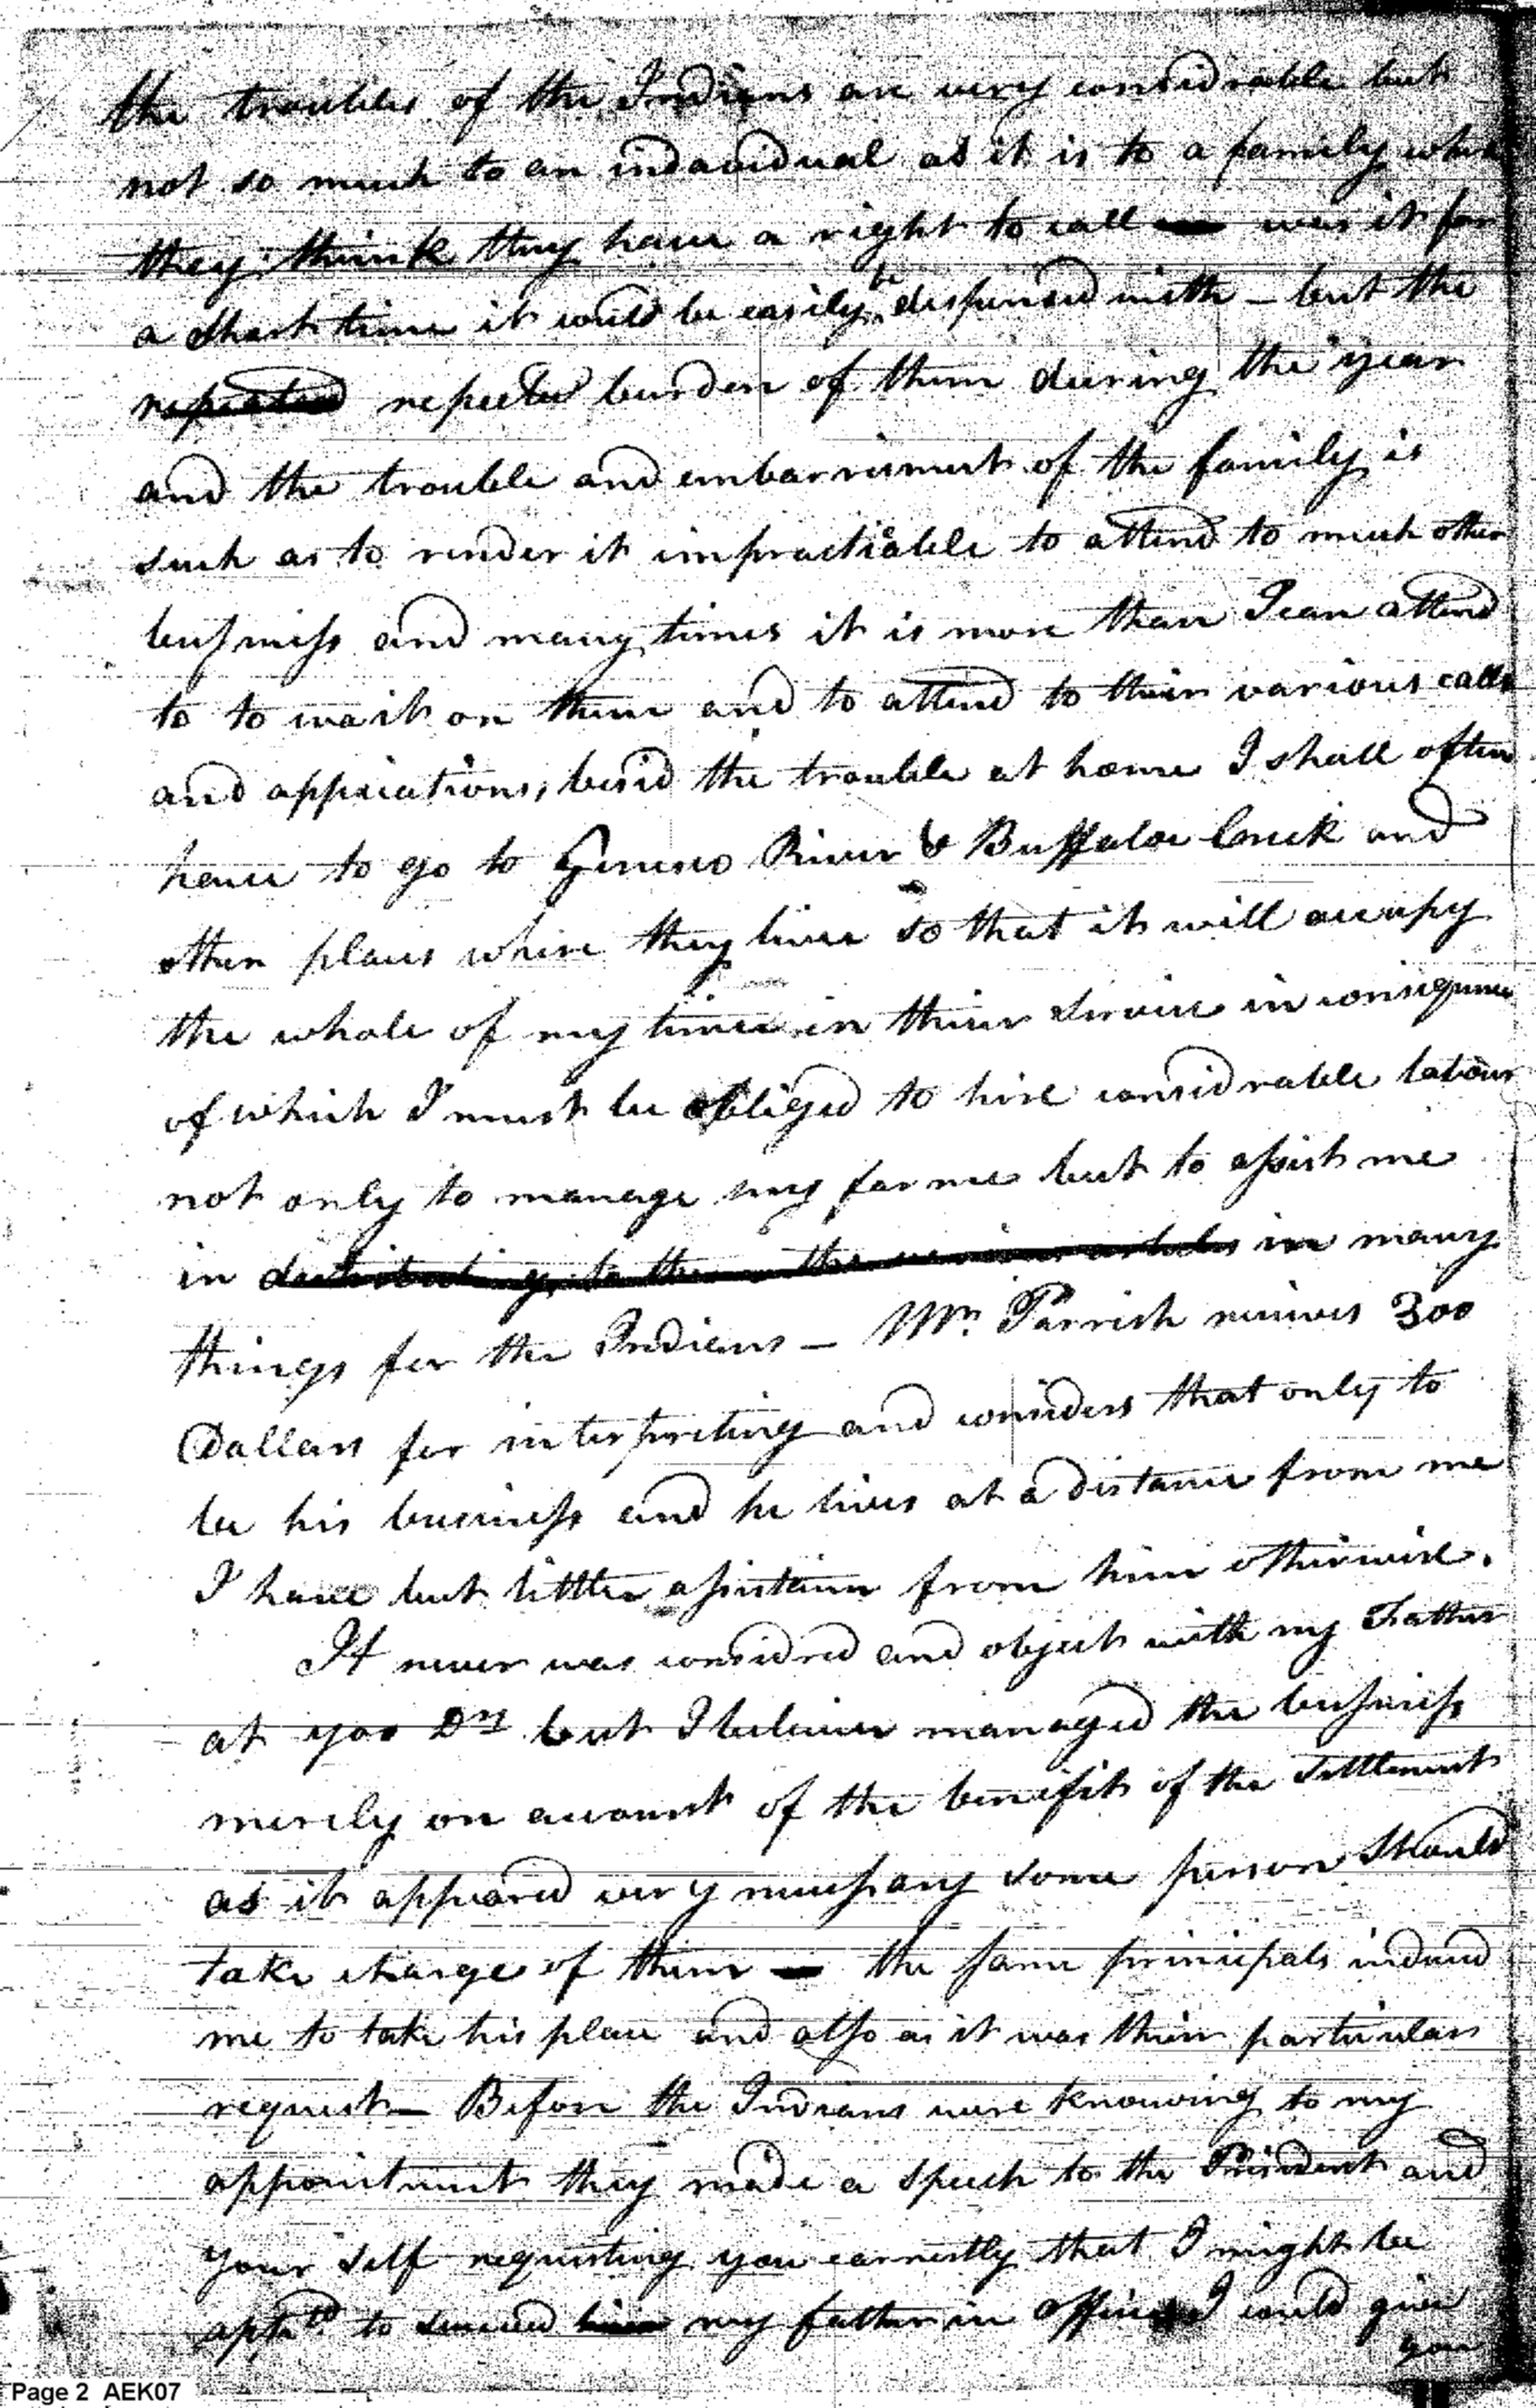 the troubles of the Indians are very considrable but
not so much to an indavidual as it is to a family when
they think they have a right to call was it for
a short time it would be easily be dispensed with – but the
repeated burden of them during the year
and the trouble and embarrisment of the family is
such as to render it impractiable to attend to much other
busniss and many times it is more than I can attend
to to wait on them and to attend to their various calls
and appications, besid the trouble at home I shall often
have to go to Geneseo River & Buffaloe Creek and
other places where they live so that it will occupy
the whole of my time in their service in consequence
of which I must be obliged to hire considrable labour
not only to manage my farme but to assist me
in distributing to them the various articles in many
things for the Indians – Mr. Parrish receives 300
Dollars for interpreting and considers that only to
be his business and he lives at a distance from me
I have but little assistance from him otherwise.
It never was considred and object with my Father
at 400 Drs but I believe managed the busniss
merely on account of the benifit of the settlement
as it appeared very necessary some person should
take charge of them – the same principals induced
me to take his place and also as it was their particular
request – Before the Indians were knowing to my
appointment they made a speech to the President and
your self requesting you earnestly that I might be
aptd to succeed him my father in office I could give
you
Page 2 AEK07